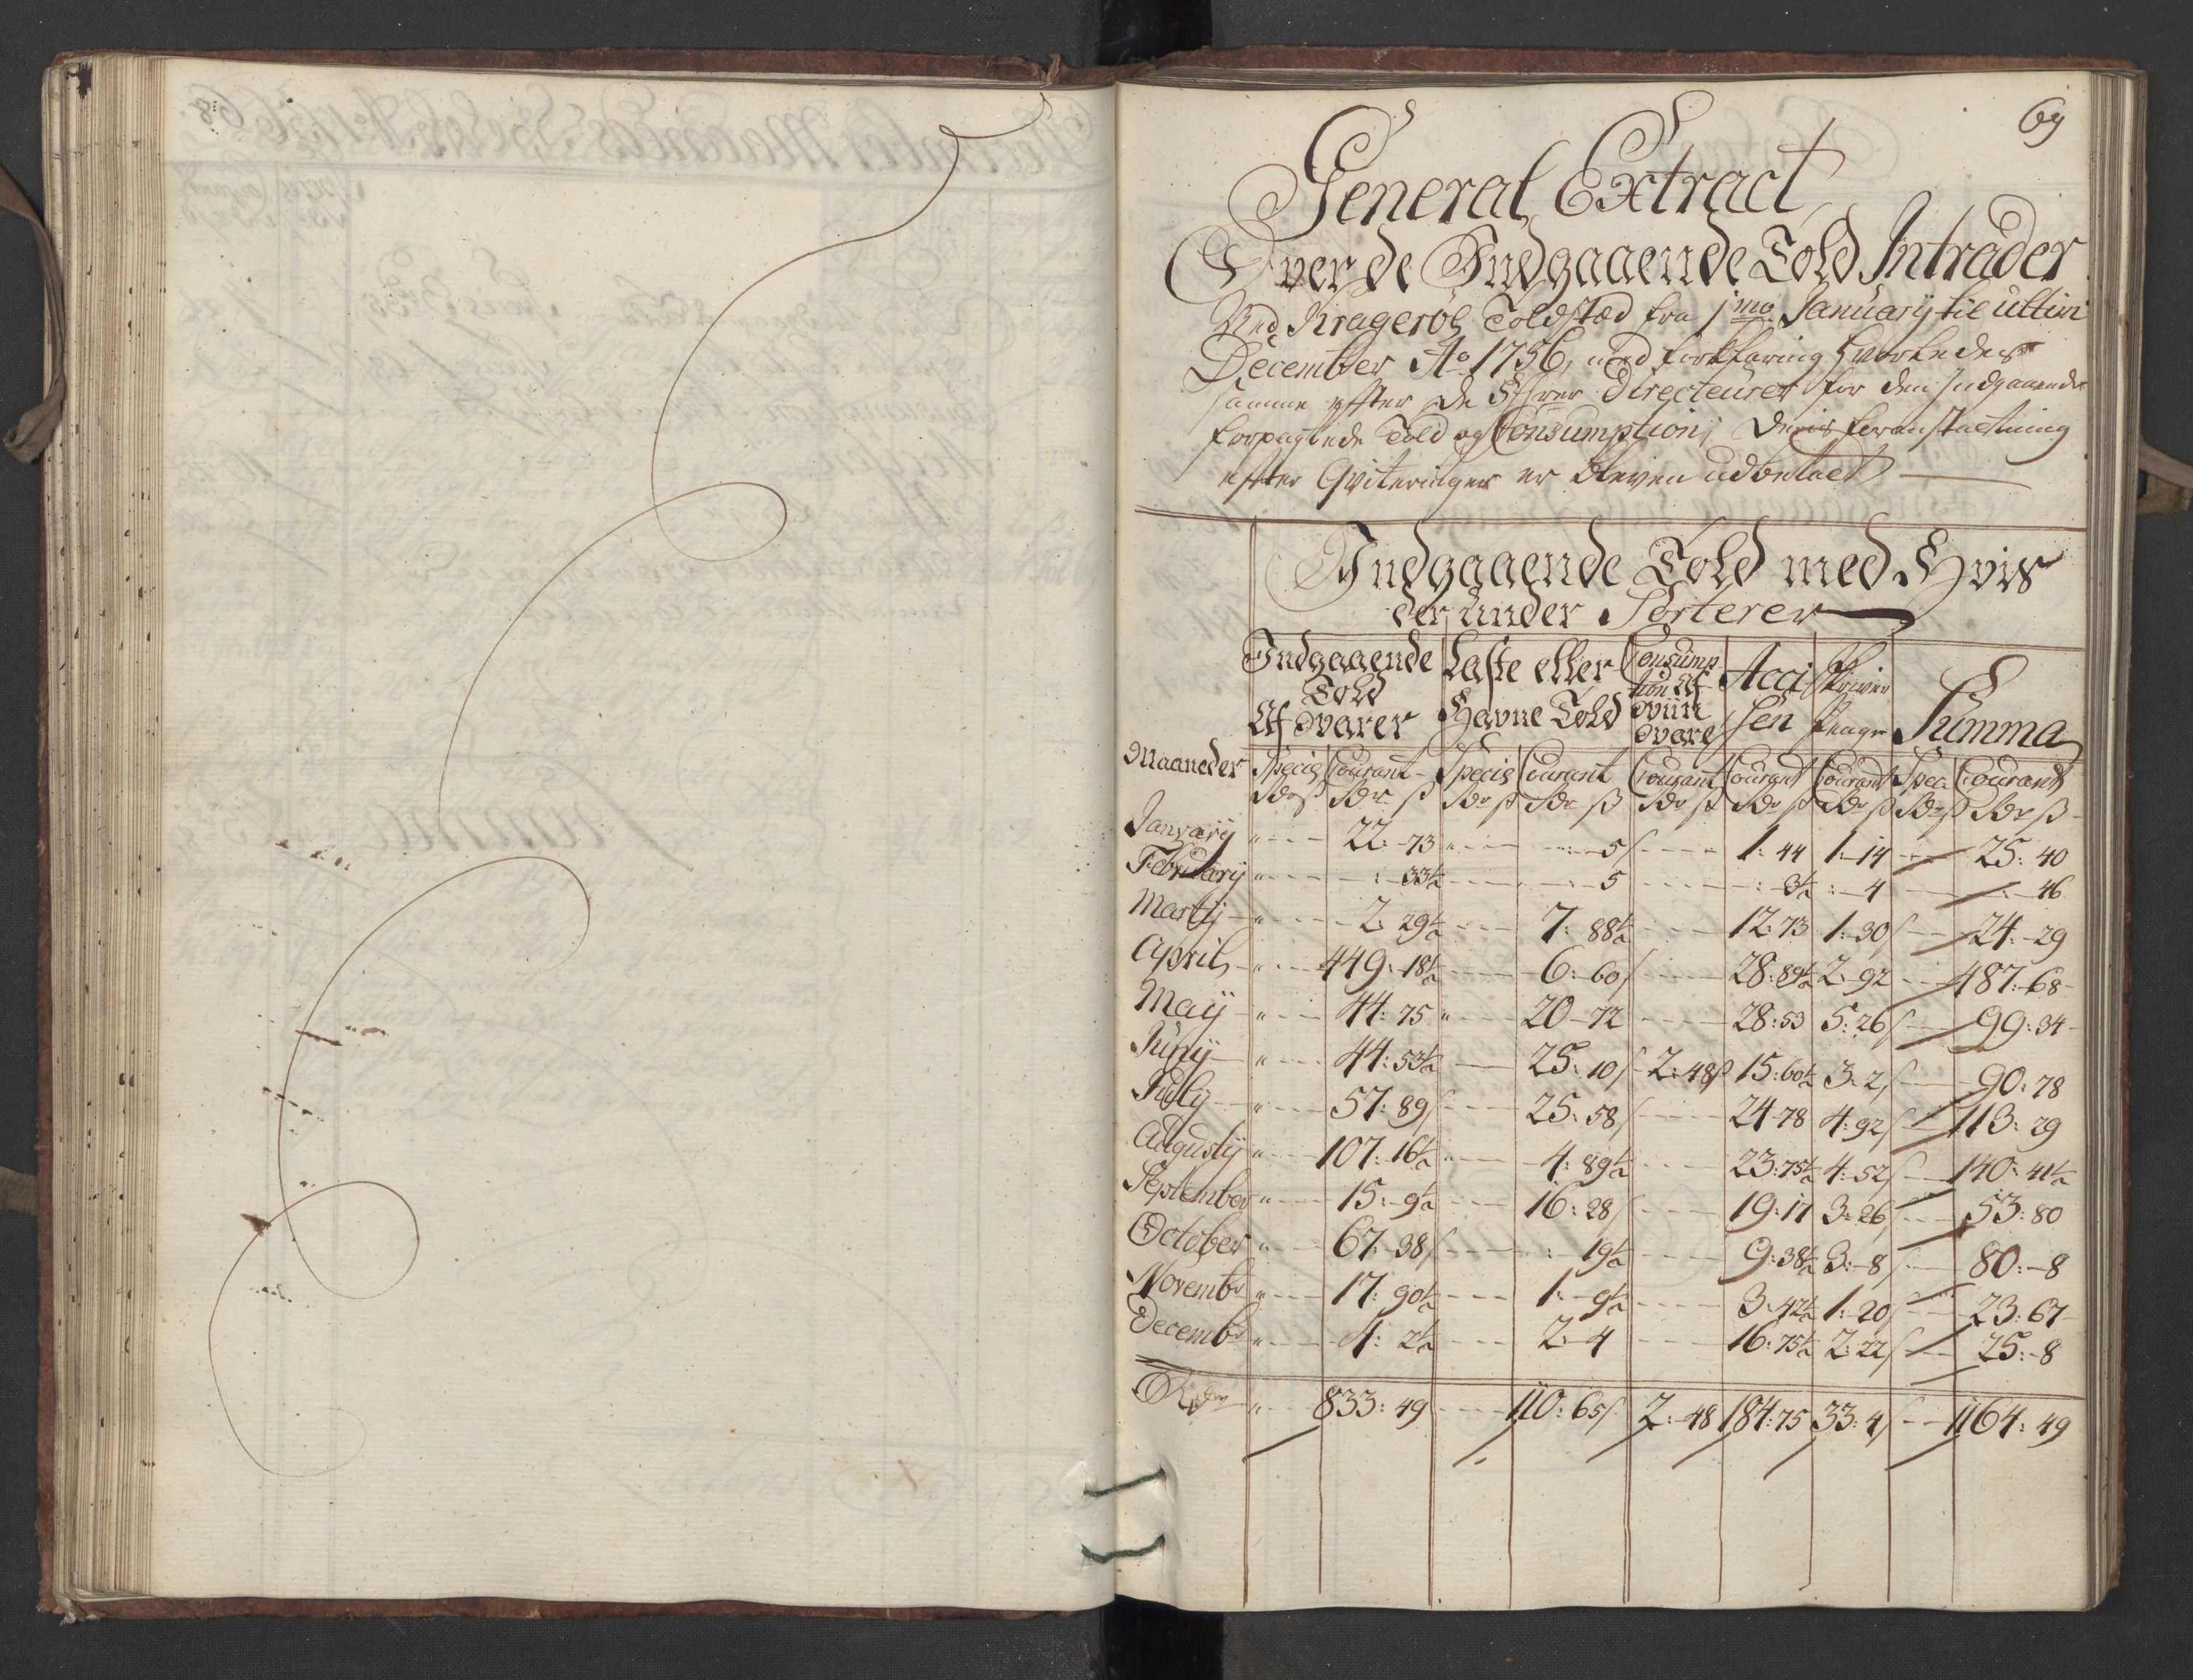 69
General Extract
Over de Indgaaende Told Intrader
Ved Kragerøe Toldsted fra 1mo January til ultimi
December Ao 1756, med forklaring hvorledes
samme efter de Hrrer Directeurer for den Indgaaende
forpagtede Told og Consumption, Deris foranstaltning
efter Qviteringer er bleven udbetalt
Indgaaende Told med Hvis
der under Sorterer
Indgaaende Told Af Varer | Laste eller Havne Told | Consumption Af Vare | Accisen | Skriver Penge | Summa
Maaneder | Specis | Courant | Specis | Courant | Courant | Courant | Courant | Spec: | Courant
Rdr ß | Rdr ß | Rdr ß | Rdr ß | Rdr ß | Rdr ß | Rdr ß | Rdr ß | Rdr ß
January " 22: 73 " : 5 1: 44 1: 14 25: 40
February " : 33½ : 5 : 3½ : 4 : 46
Martij " 2: 29½ 7: 88½ 12: 73 1: 30 24: 29
April " 449: 18½ 6: 60 28: 89½ 2: 92 487: 68
Maij " 44: 75 " 20 72 28: 53 5: 26 99: 34
Junij " 44: 53½ 25: 10 2: 48ß 15: 60½ 3: 2 90: 78
July " 57: 89 25: 58 24 78 4: 92 113: 29
Augustij " 107: 16½ " 4: 89½ 23: 75½ 4: 52 140: 41½
September " 15: 9½ 16: 28 19: 17 3: 26 53: 80
October " 67: 38 : 19½ 9: 38½ 3: 8 80: 8
Novembr " 17: 90½ 1: 9½ 3: 42½ 1: 20 23: 67
Decembr " 4: 2½ 2: 4 16: 75½ 2: 22 25: 8
Rdr " 833: 49 110: 65 2: 48 184: 75 33: 4 1164: 49